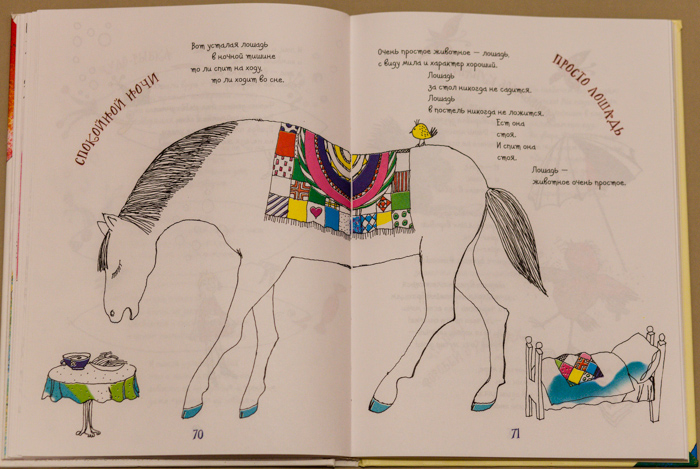 СПОКОЙНОЙ НОЧИ
Вот усталая лошадь
в ночной тишине
то ли спит на ходу,
то ли ходит во сне.
70
ПРОСТО ЛОШАДЬ
Очень простое животное — лошадь,
с виду мила и характер хороший.
Лошадь
за стол никогда не садится.
Лошадь
в постель никогда не ложится.
Ест она
стоя.
И спит она
стоя.
Лошадь —
животное очень простое.
71